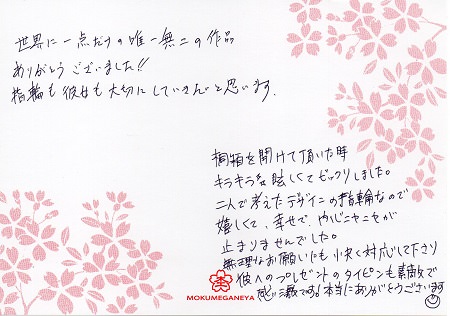 世界に一点だけの唯一無二の作品
ありがとうございました!!
指輪も彼女も大切にしていきたいと思います.
桐箱を開けて頂いた時
キラキラ眩しくてビックリしました。
二人で考えたデザインの指輪なので
嬉しくて、幸せで、ニヤニヤが
止まりませんでした。
無理なお願いにも 快く対応して下さり
彼へのプレゼントのタイピンも素敵で
感激です。本当にありがとうございます
MOKUMEGANEYA